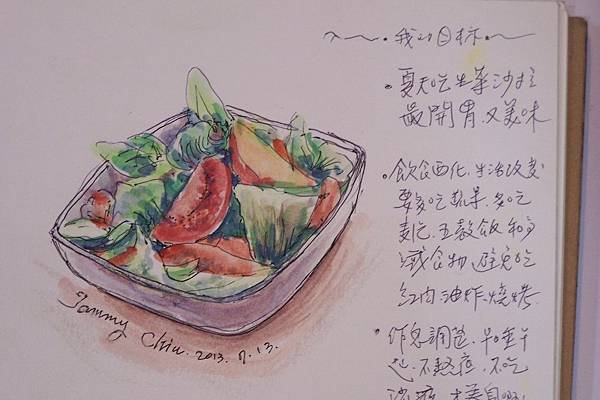 我的目标
夏天吃生菜沙拉
最開胃又美味
飲食西化.生活改变
要多吃蔬果.多吃
五穀飯和
減食物.避免吃
紅肉.油炸.燒烤.
作息調整.早睡早
起.不熬夜.不吃
Tommy Chiu. 2013. 7. 13.